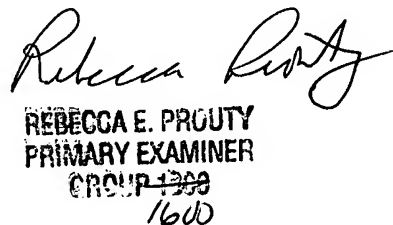 Rebecca Prouty
REBECCA E. PROUTY
PRIMARY EXAMINER
GROUP 1300
1600